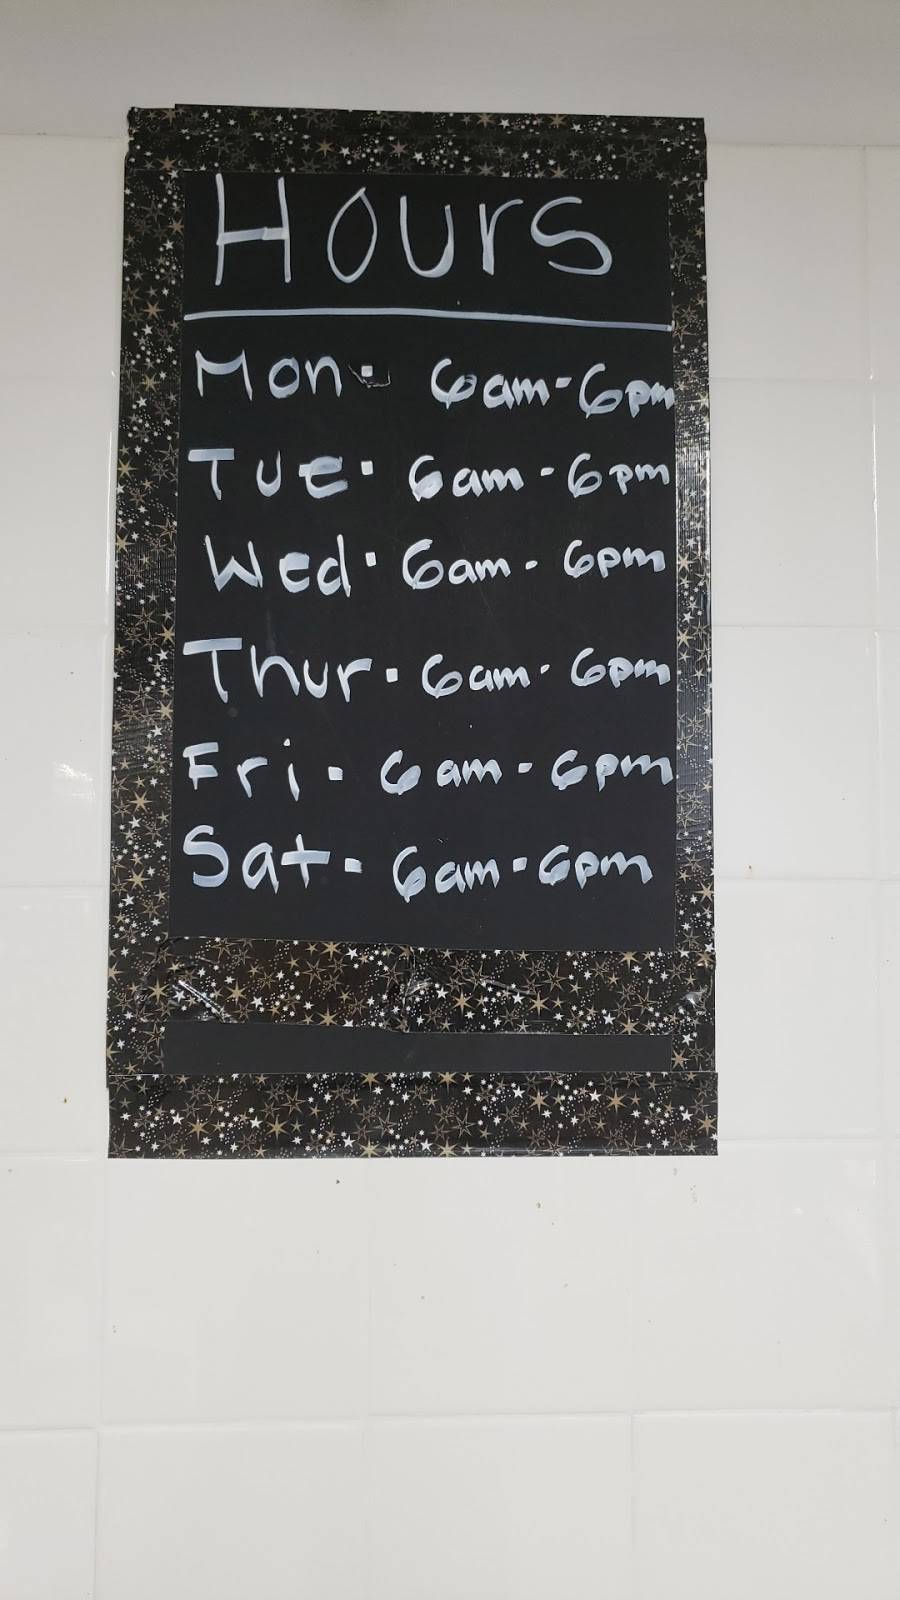 Hours
Mon. 6am-6pm
Tue. 6am-6pm
Wed. 6am-6pm
Thur. 6am-6pm
Fri. 6am-6pm
Sat. 6am-6pm